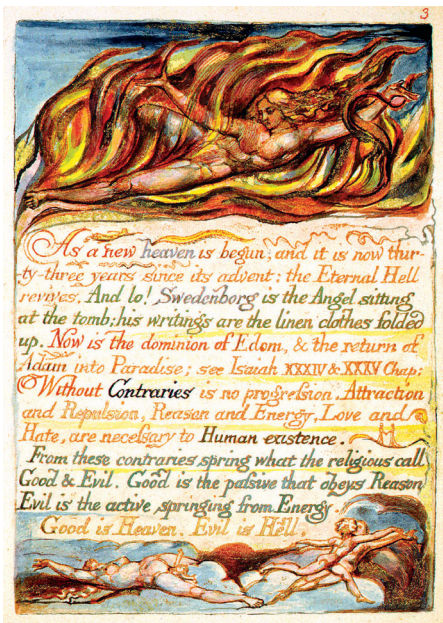 3
As a new heaven is begun, and it is now thir-
ty-three years since its advent: the Eternal Hell
revives. And lo! Swedenborg is the Angel sitting
at the tomb: his writings are the linen clothes folded
up. Now is the dominion of Edom, & the return of
Adam into Paradise; see Isaiah XXXIV & XXXV Chap:
Without Contraries is no progression. Attraction
and Repulsion, Reason and Energy, Love and
Hate, are necessary to Human existence.
From these contraries spring what the religious call
Good & Evil. Good is the passive that obeys Reason
Evil is the active springing from Energy.
Good is Heaven. Evil is Hell.